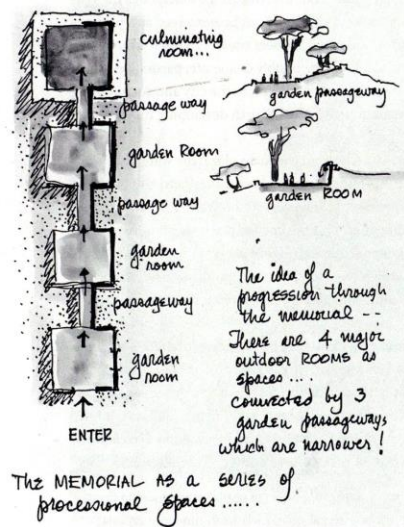 culminating
room...
passage way
garden Room
passage way
garden
room
passageway
garden
room
ENTER
garden passageway
garden ROOM
The idea of a
progression through
the memorial --
There are 4 major
outdoor ROOMS as
spaces ....
connected by 3
garden passageways
which are narrower!
The MEMORIAL AS A SERIES OF
processional spaces ......